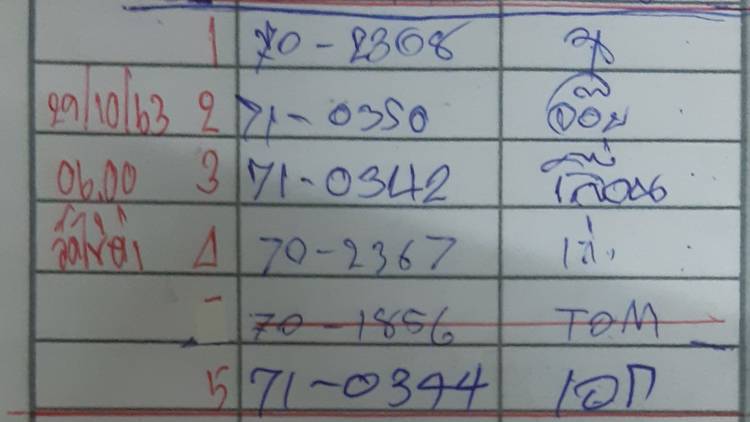 1 70-2308 นุ
29/10/63 2 71-0350 จ๊อย
06.00 3 71-0342 เลื่อน
4 70-2367 เก่ง
- 70-1856 TOM
5 71-0344 เอก